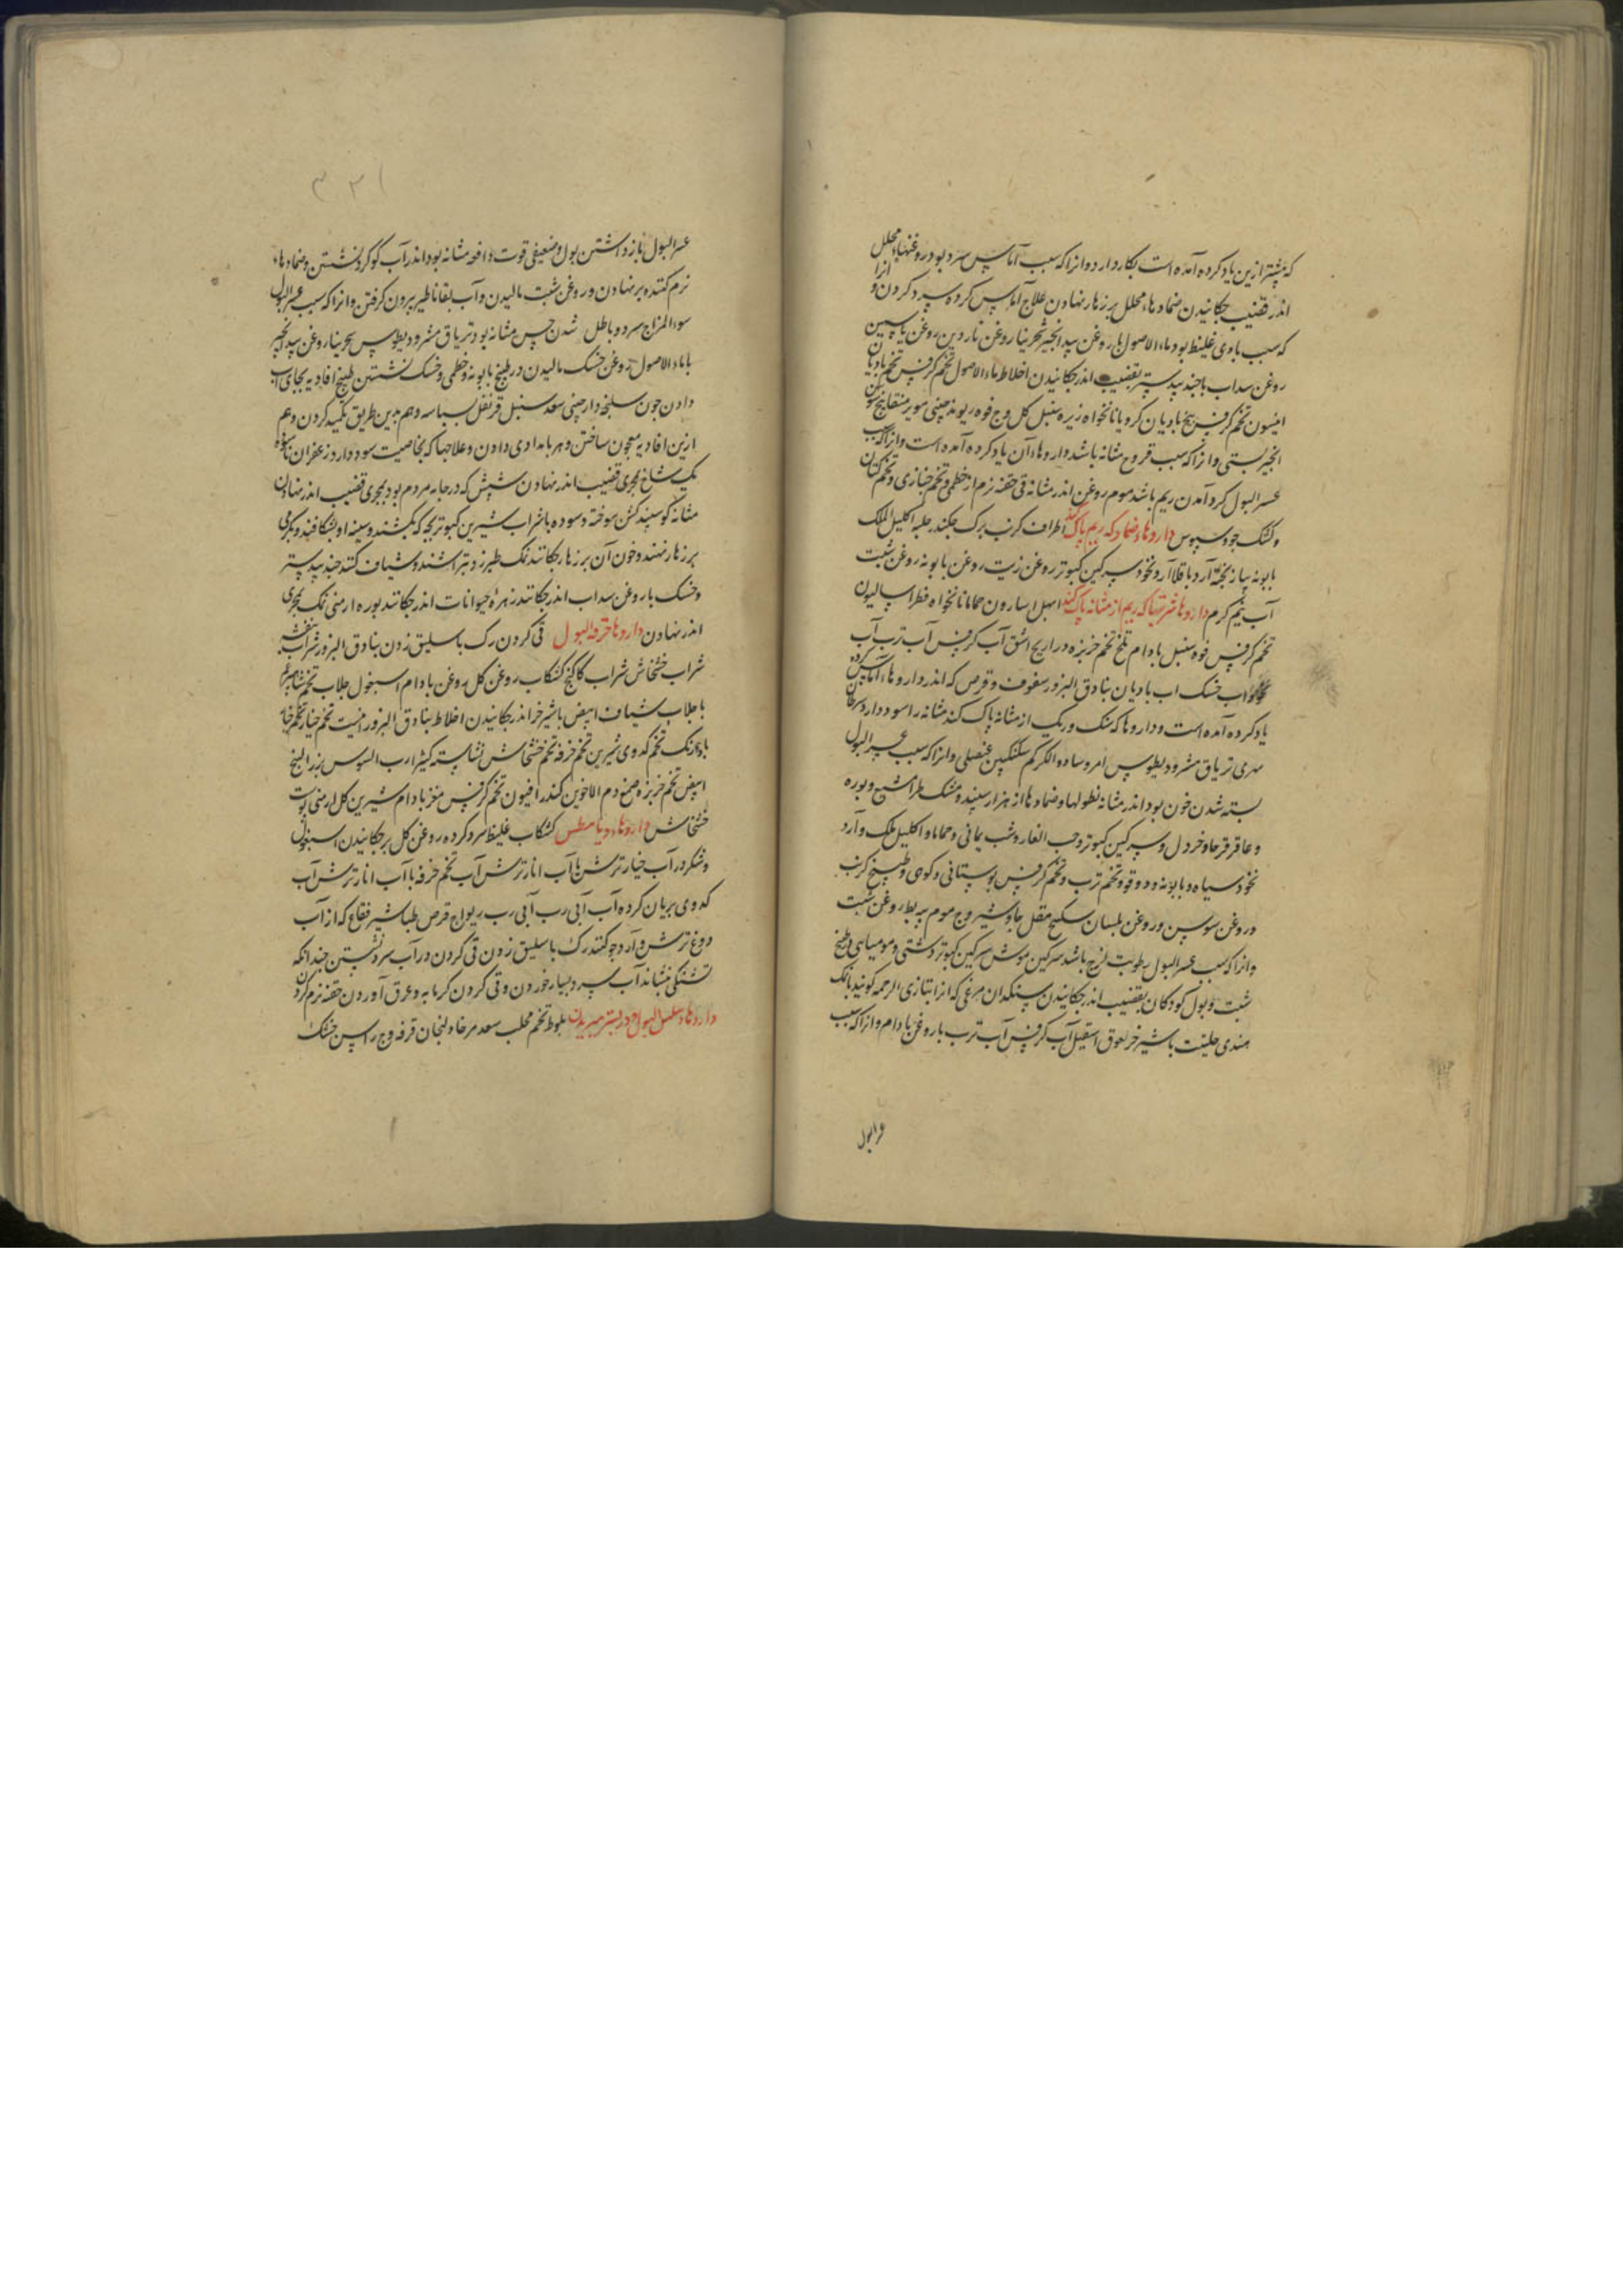 که پیشتر ازین یاد کرده آمده است بکار دارد و انرا که سبب آماس سرد بود روغنهاء محلل
اندر قضیب چکانیدن ضمادهاء محلل بر زهار نهادن علاج آماس کرده سرد کردن و انرا
که سبب بادی غلیظ بود ماء الاصول با روغن بید انجیر شجرینا روغن ناردین روغن یاسمین
روغن سداب با جند بیدستر بقضیب اندر چکانیدن اخلاط ماء الاصول تخم کرفس تخم بادیان
انیسون تخم کرفس بیخ بادیان کرویا نانخواه زیره سنبل کل وج فوه ریوند چینی مویز منقا بیخ سوسن
انجیر بستی و انرا که سبب قروح مثانه باشد داروهاء آن یاد کرده آمده است و انرا که سبب
عسر البول کرد آمدن ریم باشد موم روغن اندر مثانه قی حقنه نرم از خطمی و تخم خبازی و تخم کتان
و کشک جو و سبوس داروهاء ضماد که ریم پاک کند اطراف کرنب برک چکندر حلبه اکلیل الملک
بابونه پیاز پخته آرد باقلا آرد نخود سرکین کبوتر روغن زیت روغن بابونه روغن شبت
آب نیم کرم داروها شربتها که ریم از مثانه پاک کند ابهل اسارون حماما نانخواه فطراسالیون
تخم کرفس فوه سنبل بادام تلخ تخم خربزه دراریح اشق آب کرفس آب ترب آب
آب خسک اب بادیان بنادق البزور سفوف و قرص که اندر داروهاء آماس کرده
یاد کرده آمده است و داروها که سنک و ریک از مثانه پاک کند مثانه را سود دارد سرطان
نهری تریاق مثرودیطوس امروسا دواء الکرکم سکنکبین عنصلی و انرا که سبب عسر البول
بسته شدن خون بود اندر مثانه نطولها و ضمادها از هزار سپند و مشک طرامشیع و بوره
و عاقرقرحا و خردل و سرکین کبوتر و حب الغار و شب یمانی و حماما و اکلیل ملک و آرد
نخود سیاه و بابونه و دوقو و تخم ترب و تخم کرفس بوستانی و کوهی و طبیخ کرنب
و روغن سوسن و روغن بلسان سکبینج مقل جاوشیر وج موم پیه بط روغن شبت
و انرا که سبب عسر البول رطوبت لزج باشد سرکین موش سرکین کبوتر دشتی و مومیایی و طبیخ
شبت و بول کودکان بقضیب اندر چکانیدن سنکدان مرغی که انرا بتازی الرخمه کویند با نمک
هندی حلتیت با شیر خر لعوق اسقیل آب کرفس آب ترب با روغن بادام و انرا که سبب
عسر البول
۳۲۱
عسر البول باز داشتن بول و ضعیفی قوت دافعه مثانه بود اندر آب کوکرد نشستن و ضمادهاء
نرم کننده بر نهادن و روغن شبت مالیدن و آب بقاثاطیر بیرون کرفتن و انرا که سبب عسر البول
سوء المزاج سرد و باطل شدن حس مثانه بود تریاق مثرودیطوس سجرینا روغن بید انجیر
با ماء الاصول روغن خسک مالیدن در طبیخ بابونه و خطمی و خسک نشستن طبیخ افاویه بجای آب
دادن چون سلیخه دارچینی سعد سنبل قرنفل بسباسه و هم بدین طریق تکمید کردن و هم
ازین افاویه معجون ساختن و هر بامدادی دادن و علاجها که بخاصیت سود دارد زعفران سوده
یک شاخ بمجری قضیب اندر نهادن شپش که در جامه مردم بود بمجری قضیب اندر نهادن
مثانه کوسپند کشن سوخته و سوده با شراب شیرین کبوتر بچه که بکشند و سینه او بشکافند و بکرمی
بر زهار نهند و خون آن بر زهار چکانند نمک طبرزد بتراشند و شیاف کنند جند بیدستر
و خسک با روغن سداب اندر چکانند زهره حیوانات اندر چکانند بوره ارمنی نمک بمجری
اندر نهادن داروها حرقه البول قی کردن رک باسلیق زدن بنادق البزور شراب بنفشه
شراب خشخاش شراب کاکنج کشکاب روغن کل روغن بادام اسبغول جلاب تخم شاهسفرم
با جلاب شیاف ابیض با شیر خر اندر چکانیدن اخلاط بنادق البزور اینست تخم خیار تخم خیار
بادرنک تخم کدوی شیرین تخم خرفه تخم خشخاش نشاسته کثیرا رب السوس بزر البنج
ابیض تخم خربزه صمغ دم الاخوین کندر افیون تخم کرفس مغز بادام شیرین کل ارمنی پوست
خشخاش داروهاء دیابیطس کشکاب غلیظ سرد کرده روغن کل بر چکانیدن اسبغول
و شکر در آب خیار ترش با آب انار ترش آب تخم خرفه با آب انار ترش آب
کدوی بریان کرده آب آبی رب آبی رب ریواج قرص طباشیر فقاع که از آب
دوغ ترش و آرد جو کنند رک باسلیق زدن قی کردن در آب سرد نشستن چندانکه
تشنکی بنشاند آب سرد بسیار خوردن و قی کردن کرمابه و عرق آوردن حقنه نرم کردن
داروهاء سلسل البول و در بستر میزیدن بلوط تخم محلب سعد مر خاولنجان قرفه وج راسن خشک